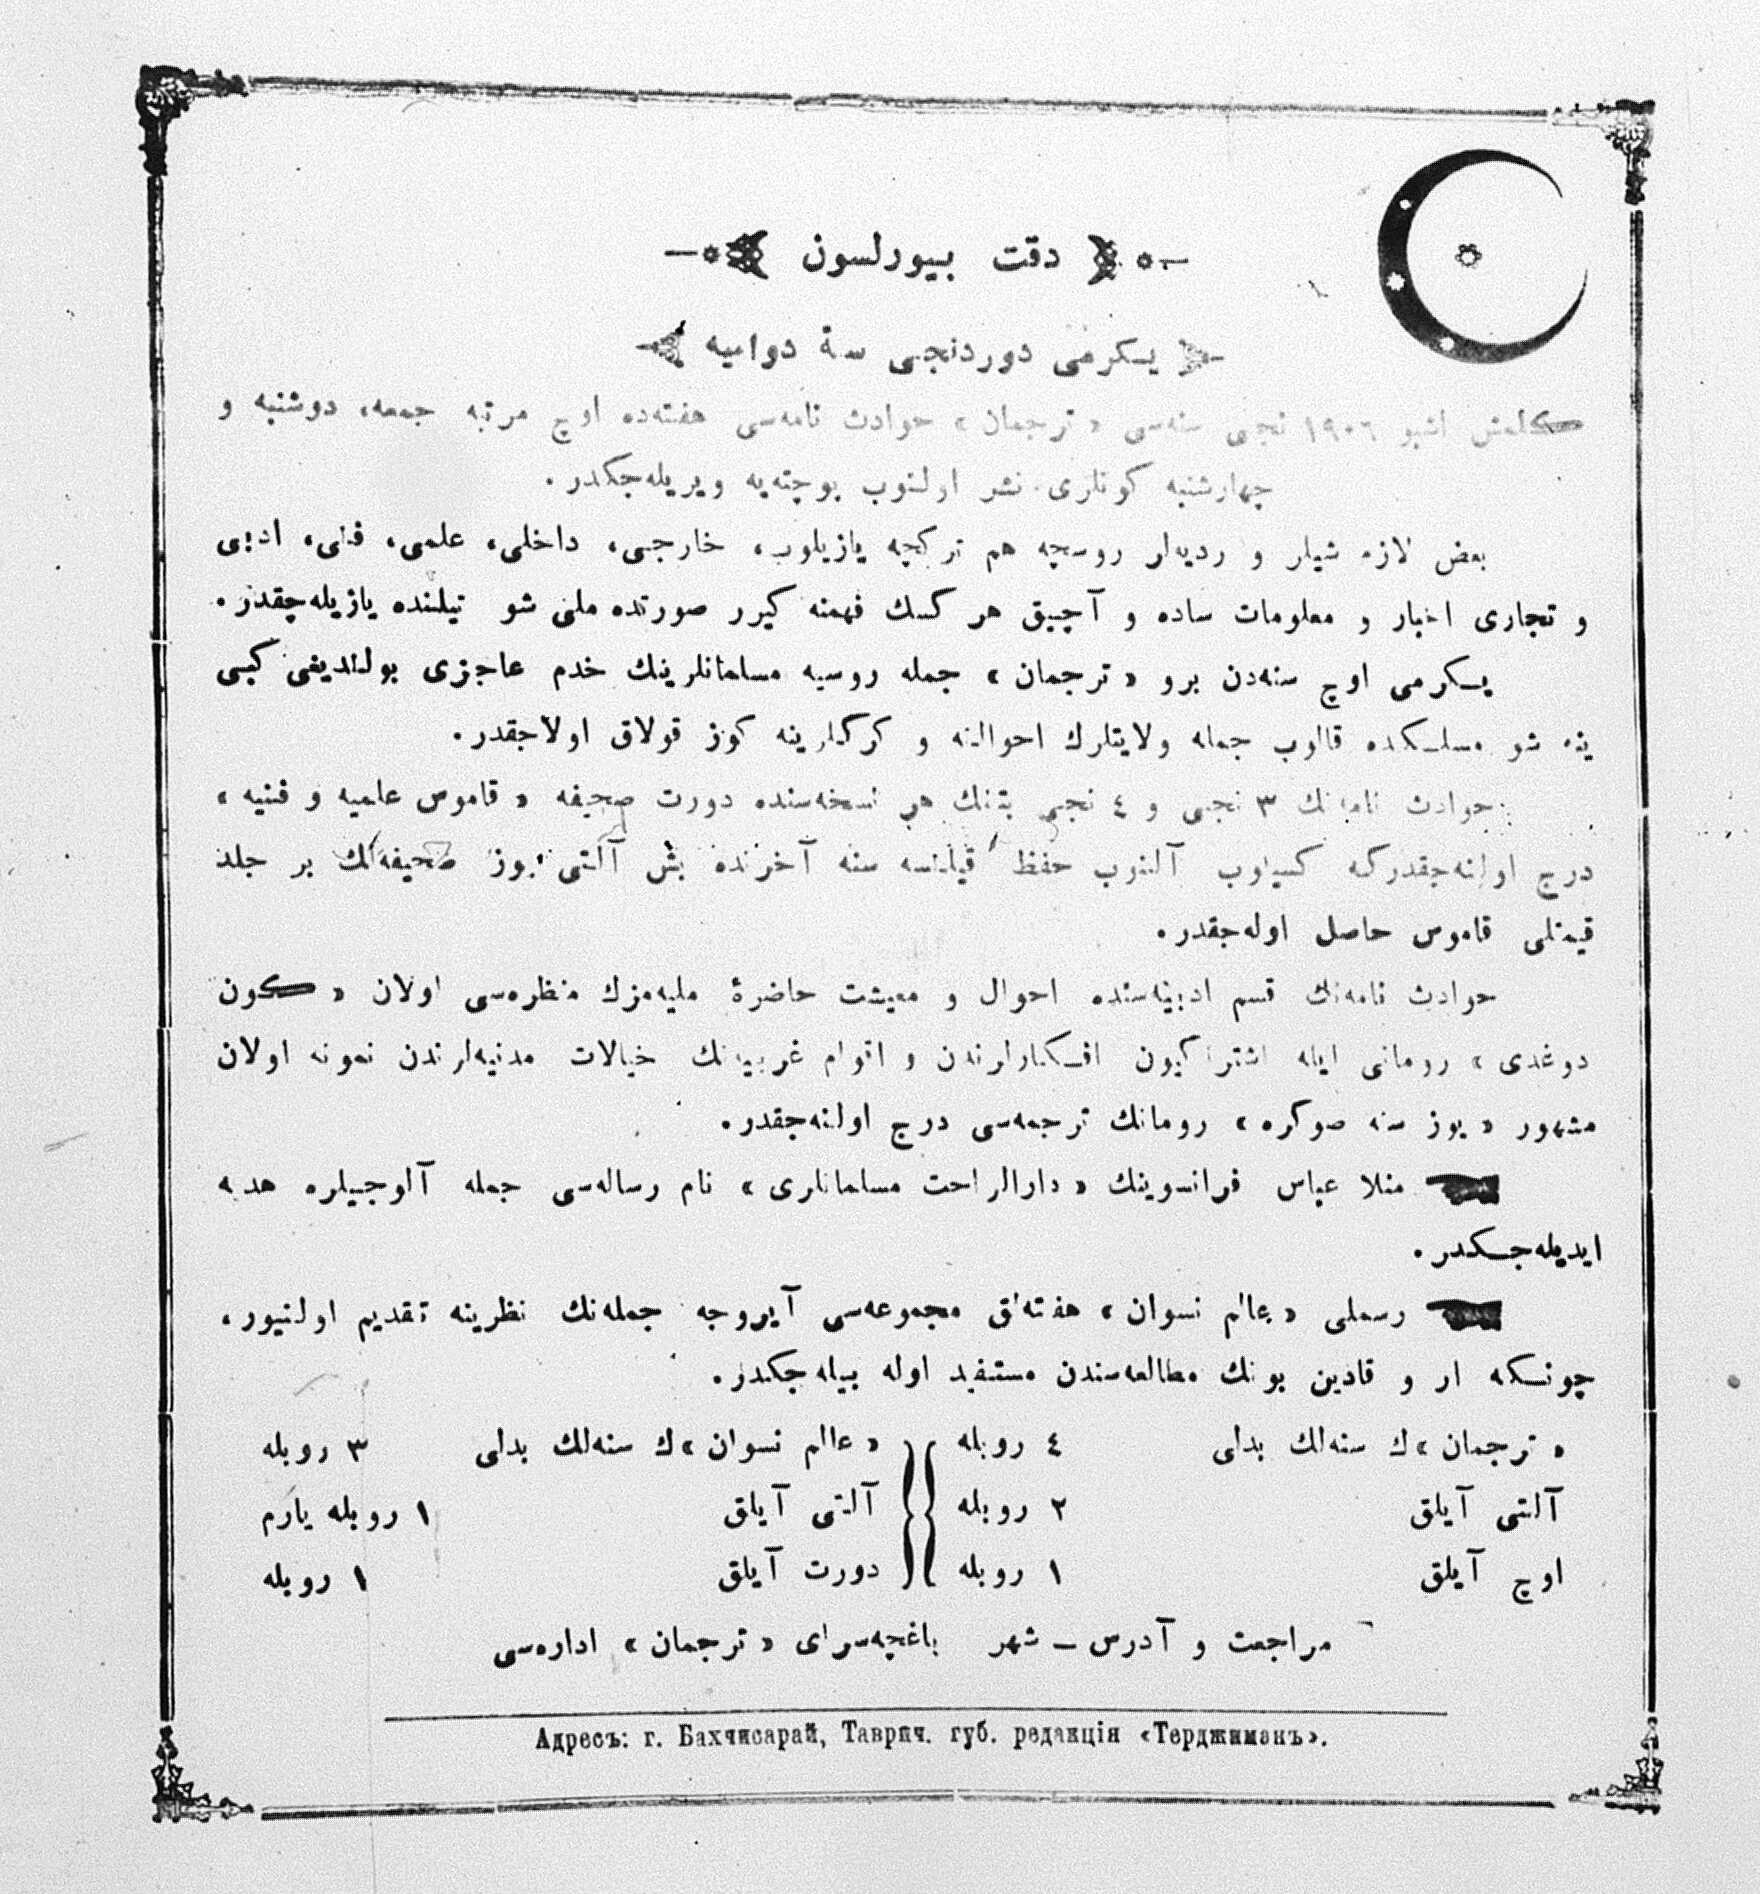 دقت بیورلسون
یكرمی دوردنجی سنهٔ دوامیه
كلمش اشبو ١٩٠٦ نجی سنه‌سی « ترجمان » حوادث نامه‌سی هفته‌ده اوچ مرتبه جمعه، دوشنبه و
چهارشنبه كونلری نشر اولنوب پوچته‌یه ویریله‌جكدر.
بعض لازم شیلر و ردیه‌لر روسچه هم تركچه یازیلوب، خارجی، داخلی، علمی، فنی، ادبی
و تجاری اخبار و معلومات ساده و آچیق هر كسك فهمنه كیرر صورتده ملی شو تیلنده یازیله‌جقدر.
یكرمی اوچ سنه‌دن برو « ترجمان » جمله روسیه مسلمانلرینك خدم عاجزی بولندیغی كبی
ینه شو مسلكده قالوب جمله ولایتلرك احوالنه و كركلرینه كوز قولاق اولاجقدر.
حوادث نامه‌نك ٣ نجی و ٤ نجی بتنك هر نسخه‌سنده دورت صحیفه « قاموس علمیه و فنیه »
درج اولنه‌جقدركه كسیلوب آلنوب حفظ قیلنسه سنه آخرنده بش آلتی یوز صحیفه‌لك بر جلد
قیمتلی قاموس حاصل اوله‌جقدر.
حوادث نامه‌نك قسم ادبیه‌سنده احوال و معیشت حاضرهٔ ملیه‌مزك منظره‌سی اولان « كون
دوغدی » رومانی ایله اشتراكیون افكارلرندن و اقوام غربیه‌نك خیالات مدنیه‌لرندن نمونه اولان
مشهور « یوز سنه صوكره » رومانك ترجمه‌سی درج اولنه‌جقدر.
منلا عباس فرانسوینك « دارالراحت مسلمانلری » نام رساله‌سی جمله آلوجیلره هدیه
ایدیله‌جكدر.
رسملی « عالم نسوان » هفته‌لق مجموعه‌سی آیروجه جمله‌نك نظرینه تقدیم اولنیور،
چونكه ار و قادین بونك مطالعه‌سندن مستفید اوله بیله‌جكدر.
« ترجمان »ك سنه‌لك بدلی ٤ روبله
آلتی آیلق ٢ روبله
اوچ آیلق ١ روبله
« عالم نسوان »ك سنه‌لك بدلی ٣ روبله
آلتی آیلق ١ روبله یارم
دورت آیلق ١ روبله
مراجعت و آدرس ـ شهر باغچه‌سرای « ترجمان » اداره‌سی
Адресъ: г. Бахчисарай, Таврич. губ. редакція «Терджиманъ».